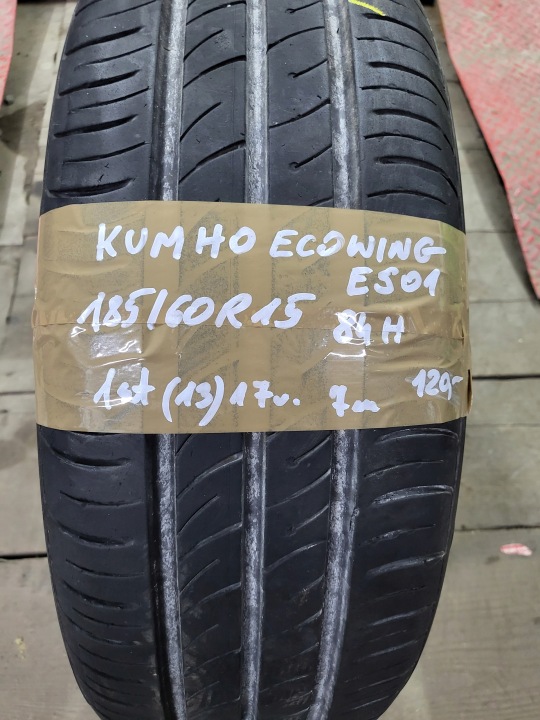 KUMHO ECOWING
ES01
185/60R15 84H
1st (13) 17v. 7m 120,-